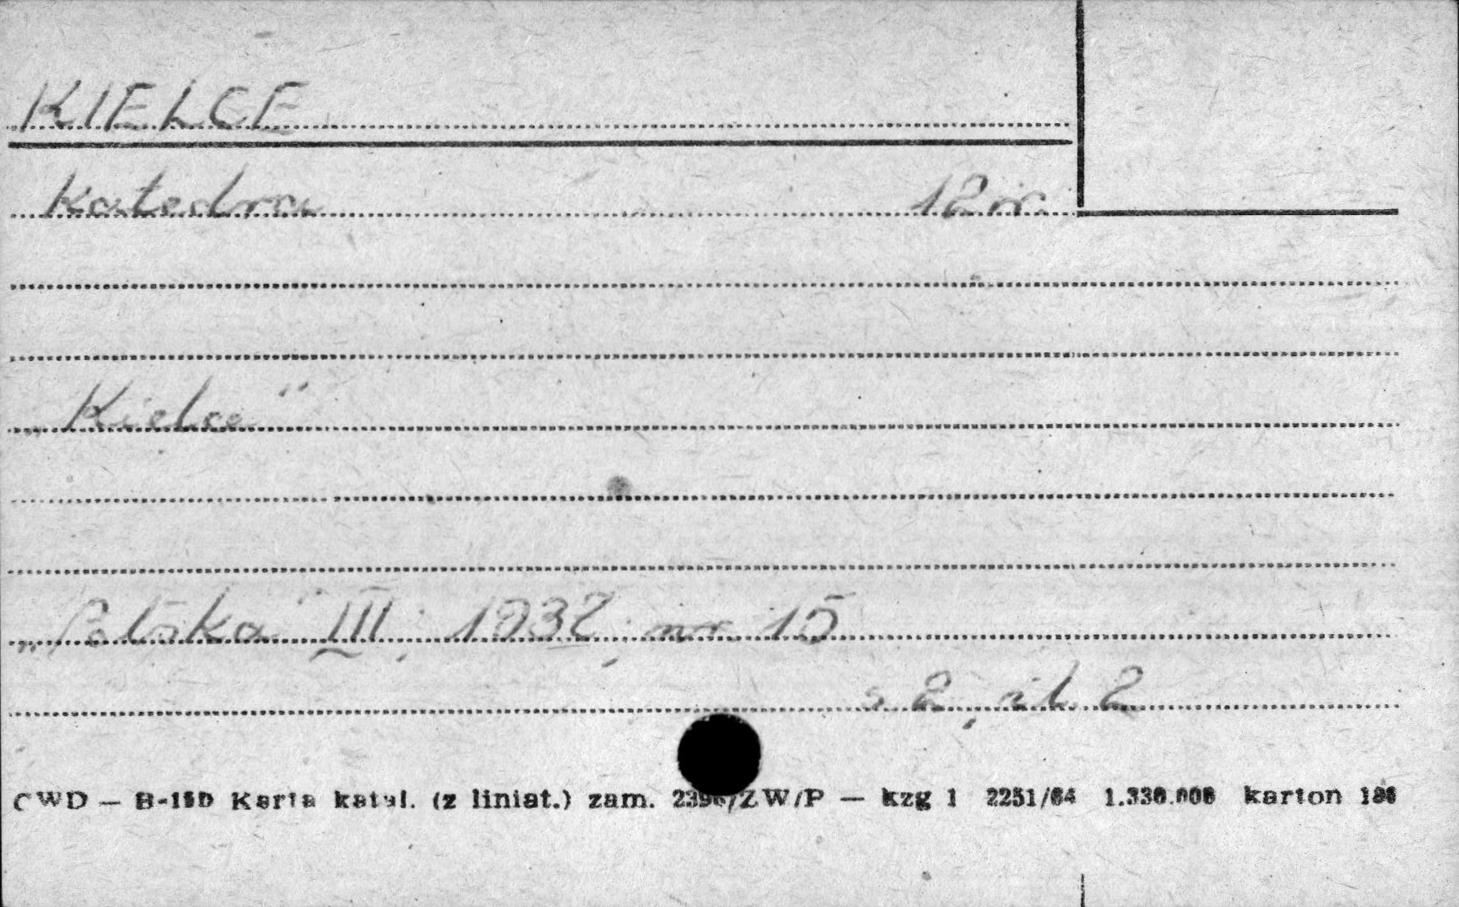 KIELCE
Katedra 12 w.
„Kielce"
„Polska" III, 1937, nr 15
s 2, il. 2
CWD — B-15D Karta katal. (z liniat.) zam. ZW/P — kzg 1 2251/64 karton